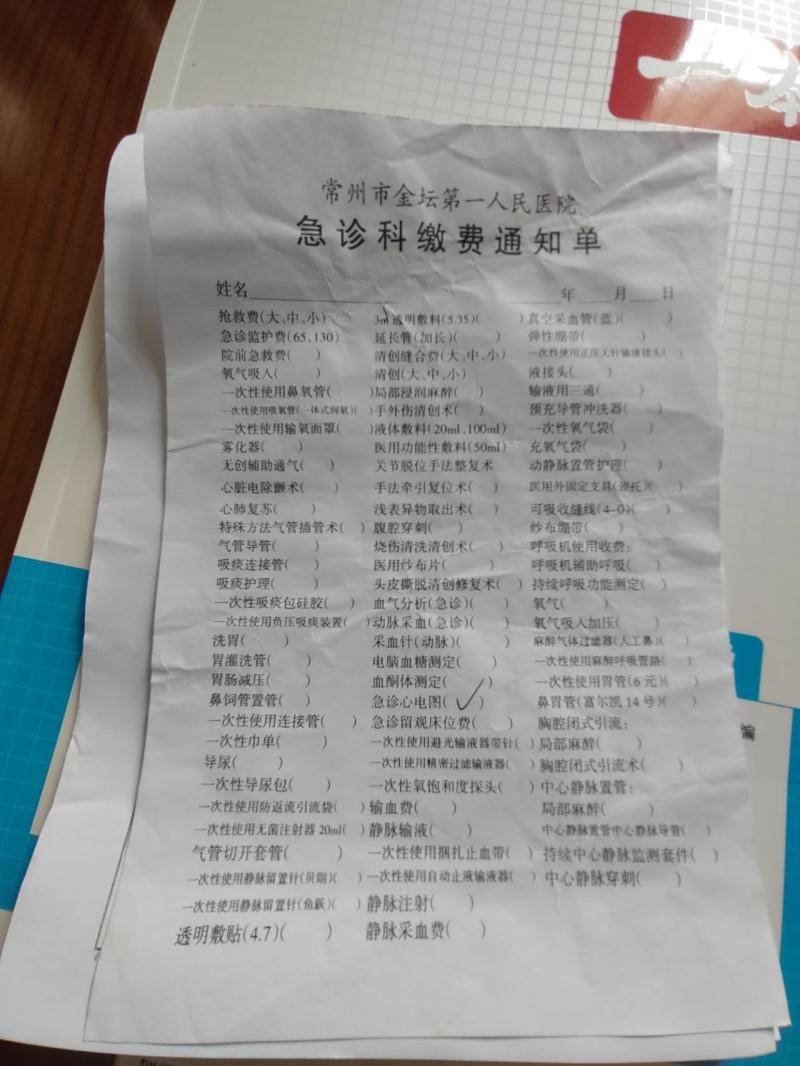 一本
常州市金坛第一人民医院
急诊科缴费通知单
姓名 年 月 日
抢救费(大、中、小) 3m透明敷料(5.35)( ) 真空采血管(蓝)( )
急诊监护费(65,130) 延长管(加长)( ) 弹性绷带( )
院前急救费( ) 清创缝合费(大、中、小) 一次性使用正压无针输液接头( )
氧气吸入( ) 清创(大、中、小) 液接头( )
一次性使用鼻氧管( ) 局部浸润麻醉( ) 输液用三通( )
一次性使用吸氧管(一体式润氧)( ) 手外伤清创术( ) 预充导管冲洗器( )
一次性使用输氧面罩( ) 液体敷料(20ml,100ml) 一次性氧气袋( )
雾化器( ) 医用功能性敷料(50ml) 充氧气袋( )
无创辅助通气( ) 关节脱位手法整复术 动静脉置管护理( )
心脏电除颤术( ) 手法牵引复位术( ) 医用外固定支具(颈托)( )
心肺复苏( ) 浅表异物取出术( ) 可吸收缝线(4-0)( )
特殊方法气管插管术( ) 腹腔穿刺( ) 纱布绷带( )
气管导管( ) 烧伤清洗清创术( ) 呼吸机使用收费:
吸痰连接管( ) 医用纱布片( ) 呼吸机辅助呼吸( )
吸痰护理( ) 头皮撕脱清创修复术( ) 持续呼吸功能测定( )
一次性吸痰包硅胶( ) 血气分析(急诊)( ) 氧气( )
一次性使用负压吸痰装置( ) 动脉采血(急诊)( ) 氧气吸入加压( )
洗胃( ) 采血针(动脉)( ) 麻醉气体过滤器(人工鼻)( )
胃灌洗管( ) 电脑血糖测定( ) 一次性使用麻醉呼吸管路( )
胃肠减压( ) 血酮体测定( ) 一次性使用胃管(6元)( )
鼻饲管置管( ) 急诊心电图(✓) 鼻胃管(富尔凯14号)( )
一次性使用连接管( ) 急诊留观床位费( ) 胸腔闭式引流:
一次性巾单( ) 一次性使用避光输液器带针( ) 局部麻醉( )
导尿( ) 一次性使用精密过滤输液器( ) 胸腔闭式引流术( )
一次性导尿包( ) 一次性氧饱和度探头( ) 中心静脉置管:
一次性使用防返流引流袋( ) 输血费( ) 局部麻醉( )
一次性使用无菌注射器20ml( ) 静脉输液( ) 中心静脉置管中心静脉导管( )
气管切开套管( ) 一次性使用捆扎止血带( ) 持续中心静脉监测套件( )
一次性使用静脉留置针(贝朗)( ) 一次性使用自动止液输液器( ) 中心静脉穿刺( )
一次性使用静脉留置针(鱼跃)( ) 静脉注射( )
透明敷贴(4.7)( ) 静脉采血费( )
编